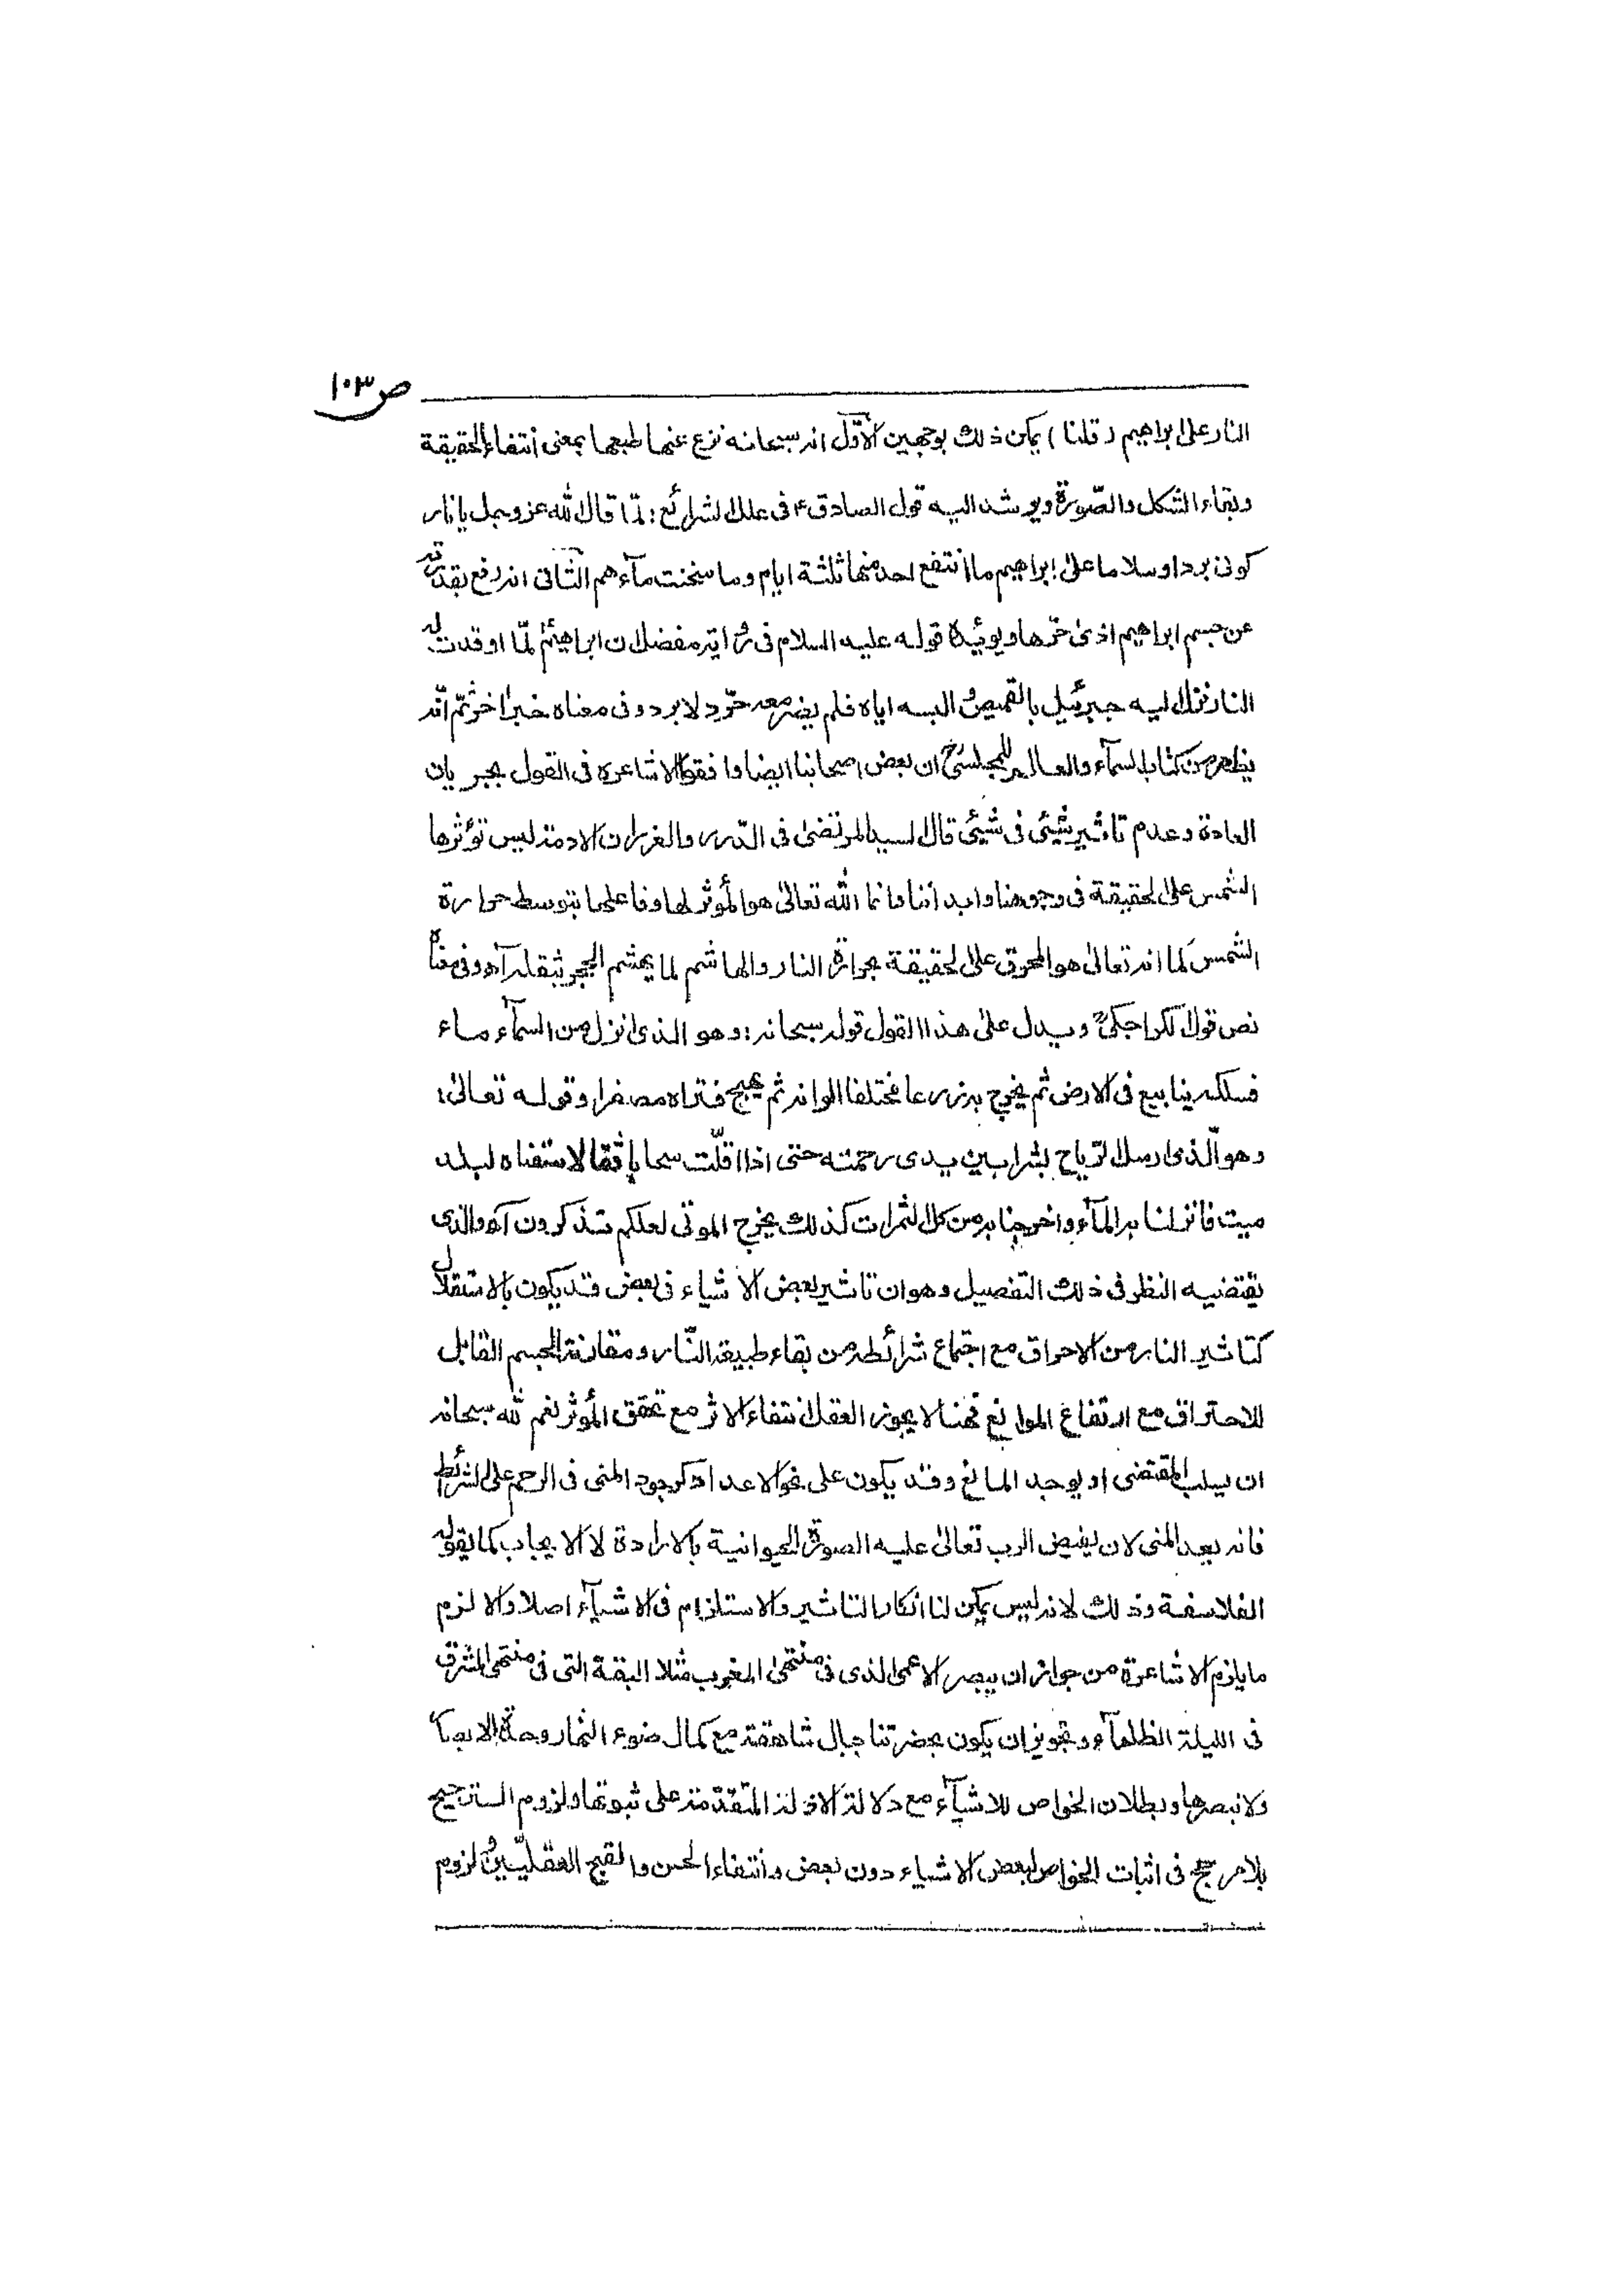 ص ١٠٣
النار على ابراهيم (قلنا) يمكن ذلك بوجهين الاوّل انه سبحانه نزع عنها طبعها بمعنى انتفاء الحقيقة
وبقاء الشكل والصّورة ويرشد اليه قول الصادق ع فى علل الشرائع: لمّا قال الله عز وجل يا نار
كونى بردا وسلاما على ابراهيم ما انتفع احد منها ثلثة ايام وما سخنت مآءهم الثانى انه رفع بقدرته
عن جسم ابراهيم اذى حرّها ويؤيّده قوله عليه السلام فى رواية مفضل ان ابراهيمؑ لمّا اوقدت له
النار نزل اليه جبرئيل بالقميص والبسه اياه فلم يضره معه حرّ ولا برد وفى معناه خبر اخر ثمّ انّه
يظهر من كتاب السمآء والعالم للمجلسىؒ ان بعض اصحابنا ايضا وافقوا الاشاعرة فى القول بجريان
العادة وعدم تاثير شيئى فى شيئى قال السيد المرتضى فى الدّرر والغرر ان الادمة ليس تؤثرها
الشمس على الحقيقة فى وجوهنا وابداننا وانما الله تعالى هو المؤثر لها وفاعلها بتوسط حرارة
الشمس كما انه تعالى هو المحرق على الحقيقة بحرارة النار والهاشم لما يهشم الحجر بثقله آه وفى معناه
نص قول الكراجكىؒ ويدل على هذا القول قوله سبحانه: وهو الذى انزل من السمآء ماء
فسلكه ينابيع فى الارض ثم يخرج به زرعا مختلفا الوانه ثم يهيج فتراه مصفرا وقوله تعالى:
وهو الّذى ارسل الرّياح بشرا بين يدى رحمته حتى اذا اقلّت سحابا ثقالا سقناه لبلد
ميت فانزلنا به المآء واخرجنا به من كل الثمرات كذلك يخرج الموتى لعلكم تذكرون آه والذى
يقتضيه النظر فى ذلك التفصيل وهو ان تاثير بعض الاشياء فى بعض قد يكون بالاستقلال
كتاثير النار من الاحراق مع اجتماع شرائطه من بقاء طبيعة النّار ومقارنة الجسم القابل
للاحتراق مع ارتفاع الموانع فهنا لا يجوز العقل انتفاء الاثر مع تحقق المؤثر نعم لله سبحانه
ان يسلب المقتضى او يوجد المانع وقد يكون على نحو الاعداد كوجود المنى فى الرحم على الشرائط
فانه يعد المنى لان يفيض الرب تعالى عليه الصورة الحيوانية بالارادة لا الايجاب كما يقوله
الفلاسفة وذلك لانه ليس يمكن لنا انكار التاثير والاستلزام فى الاشيآء اصلا والا لزم
ما يلزم الاشاعرة من جواز ان يبصر الاعمى الذى فى منتهى المغرب مثلا البقة التى فى منتهى المشرق
فى الليلة الظلمآء وتجويز ان يكون بحضرتنا جبال شاهقة مع كمال ضوء النهار وصحة الابصار
ولا نبصرها وبطلان الخواص للاشيآء مع دلالة الادلة المتقدّمة على ثبوتها ولزوم الترجيح
بلا مرجح فى اثبات الخواص لبعض الاشياء دون بعض وانتفاء الحسن والقبح العقليّين ولزوم